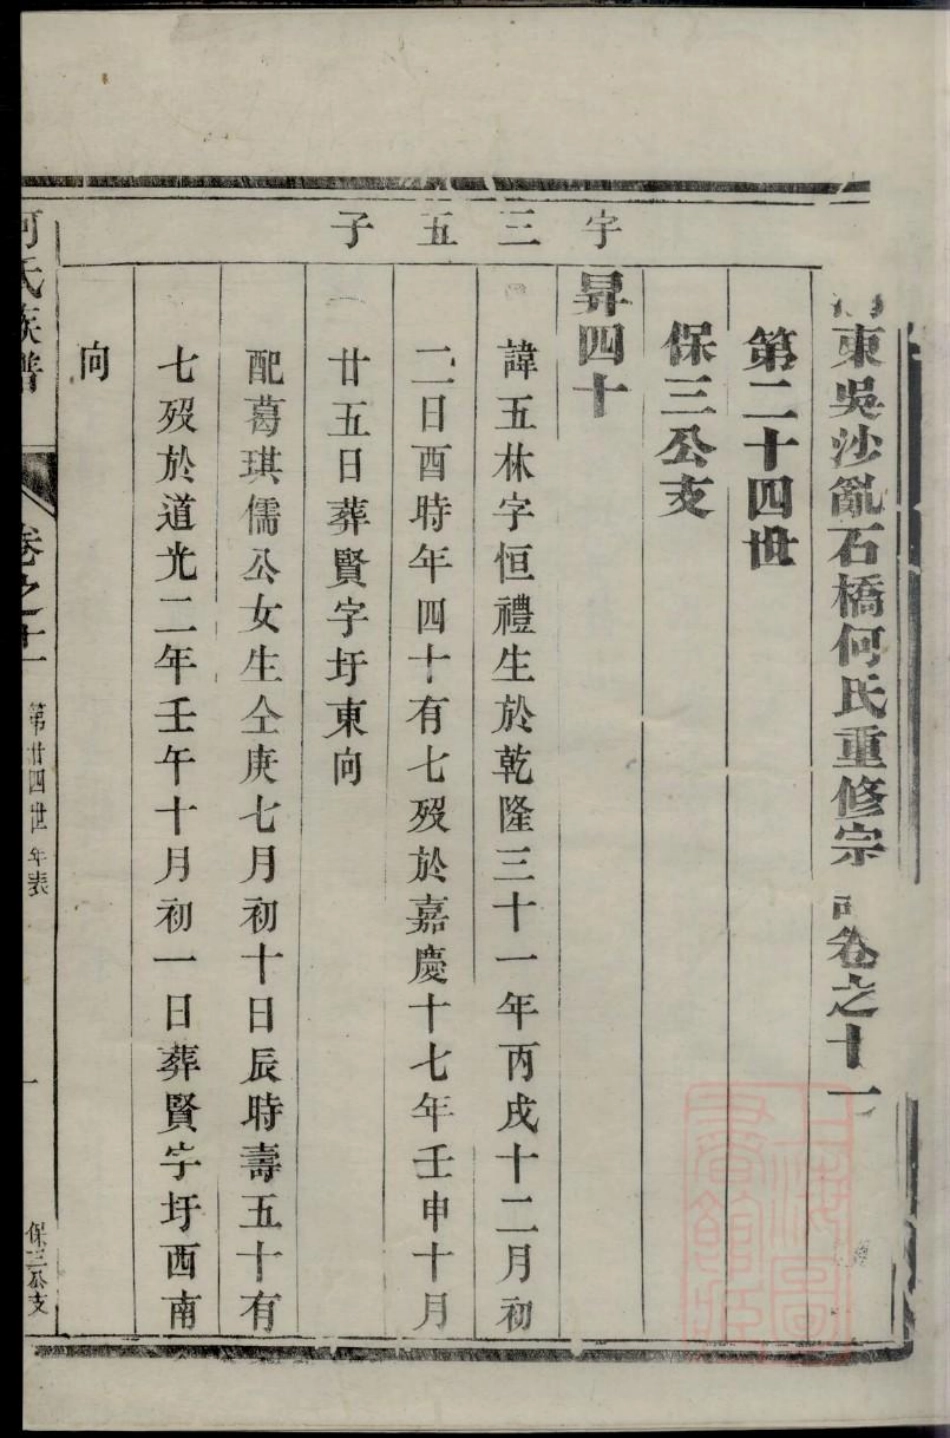 東吳沙亂石橋何氏重修宗
卷之十一
第二十四世
保三公支
宇三五子
昇四十
諱五林字恒禮生於乾隆三十一年丙戌十二月初
二日酉時年四十有七歿於嘉慶十七年壬申十月
廿五日葬賢字圩東向
配葛琪儒公女生仝庚七月初十日辰時壽五十有
七歿於道光二年壬午十月初一日葬賢字圩西南
向
何氏族譜
卷之十一
第廿四世年表
一
保三公支